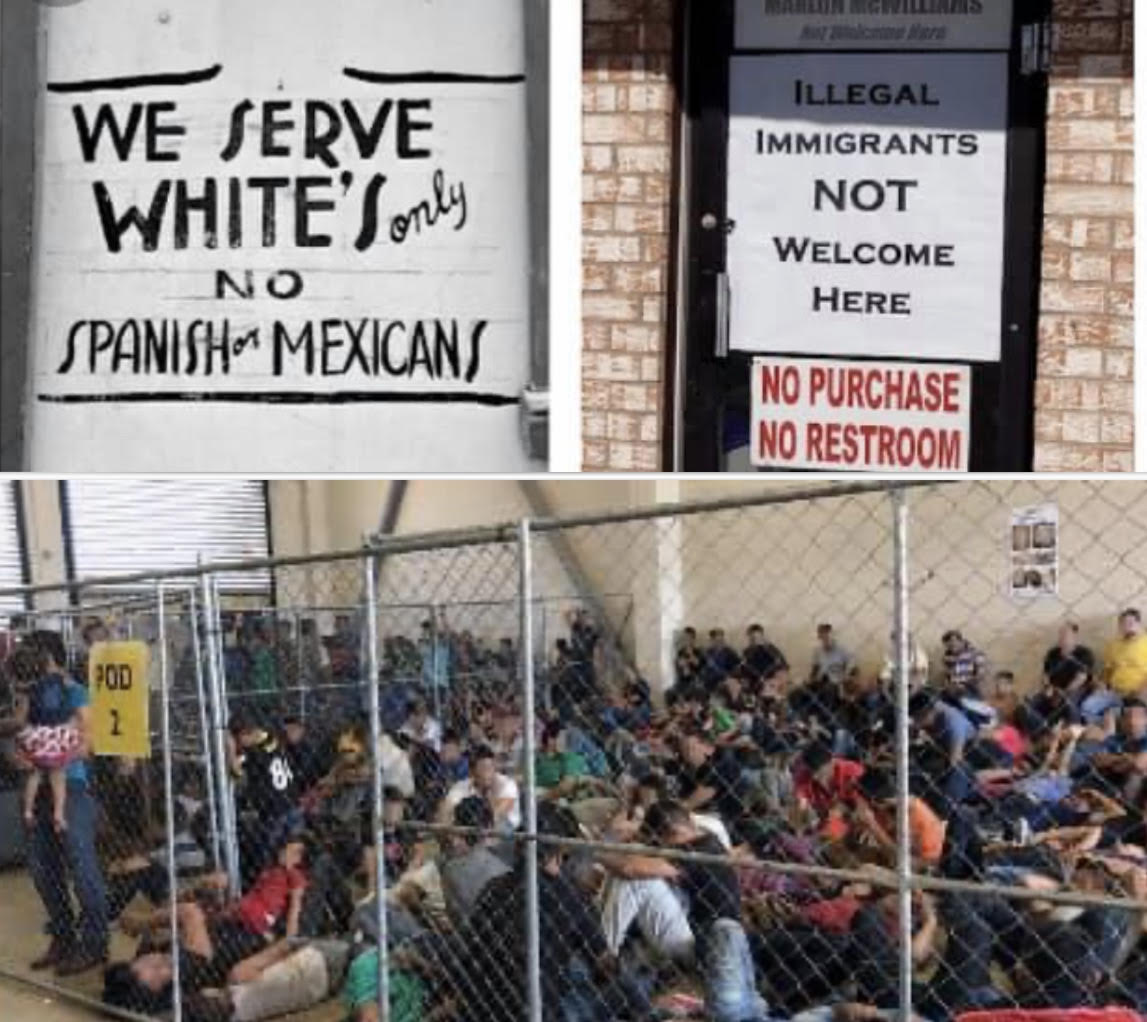 WE SERVE
WHITE'S only
NO
SPANISH or MEXICANS
MARLON McWILLIAMS
Not Welcome Here
ILLEGAL
IMMIGRANTS
NOT
WELCOME
HERE
NO PURCHASE
NO RESTROOM
POD
1